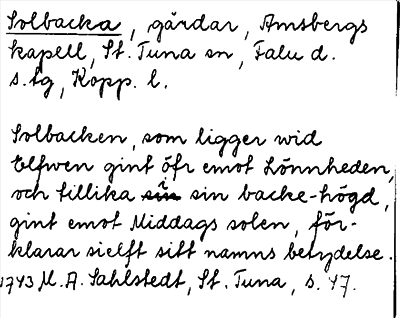 Solbacka, gårdar, Amsbergs
kapell, St. Tuna sn, Falu d.
s.tg, Kopp. l.
Solbacken, som ligger wid
Elfwen gint öfr emot Lönnheden,
och tillika sin backe-högd,
gint emot Middags solen, för-
klarar sielft sitt namns betydelse.
1743 M. A. Sahlstedt, St. Tuna, s. 47.